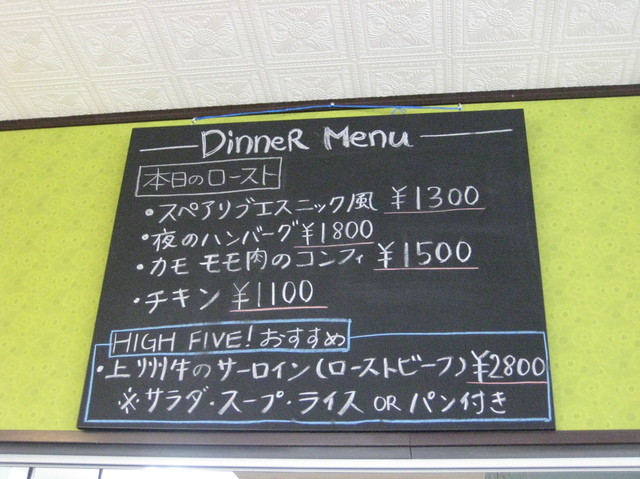 Dinner Menu
本日のロースト
・スペアリブエスニック風 ¥1300
・夜のハンバーグ ¥1800
・カモ モモ肉のコンフィ ¥1500
・チキン ¥1100
HIGH FIVE! おすすめ
・上州牛のサーロイン(ローストビーフ) ¥2800
※サラダ・スープ・ライス OR パン付き